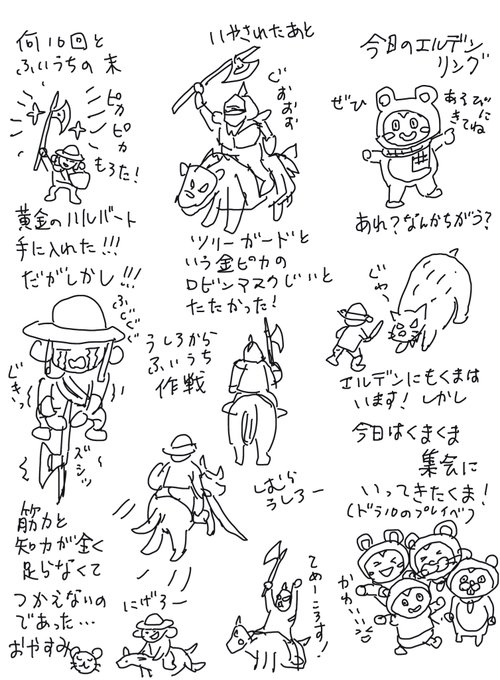 今日のエルデン
リング
ぜひ
あそびに
きてね
あれ？なんかちがう？
ぐわ
エルデンにもくまは
います！しかし
今日はくまくま
集会に
いってきたくま！
(ドラノルのプレイベ)
かわいい
いやされたあと
ぐおおお
ツリーガードと
いう金ピカの
ロビンマスクじいと
たたかった！
うしろから
ふいうち
作戦
しむら
うしろー
にげろー
てめーころす！
何10回と
ふいうちの末
ピカ
ピカ
もろた！
黄金のハルバート
手に入れた!!!
だがしかし!!!
ズシッ
筋力と
知力が全く
足らなくて
つかえないの
であった…
おやすみ